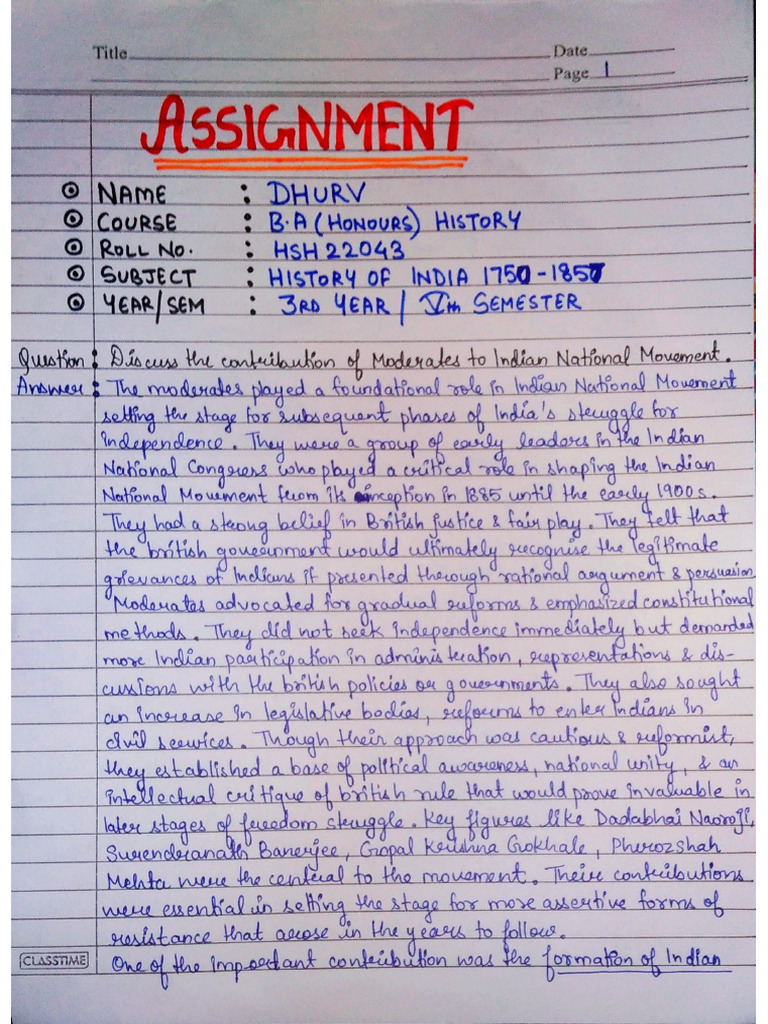 Title
Date
Page 1
ASSIGNMENT
NAME : DHURV
COURSE : B.A (HONOURS) HISTORY
ROLL NO. : HSH 22043
SUBJECT : HISTORY OF INDIA 1750-1857
YEAR/SEM : 3RD YEAR / Vth SEMESTER
Question : Discuss the contribution of Moderates to Indian National Movement.
Answer : The moderates played a foundational role in Indian National Movement
setting the stage for subsequent phases of India's struggle for
independence. They were a group of early leaders in the Indian
National Congress who played a critical role in shaping the Indian
National Movement from its inception in 1885 until the early 1900s.
They had a strong belief in British justice & fair play. They felt that
the british government would ultimately recognise the legitimate
grievances of Indians if presented through rational argument & persuasion
Moderates advocated for gradual reforms & emphasized constitutional
methods. They did not seek independence immediately but demanded
more Indian participation in administration, representations & dis-
cussions with the british policies or governments. They also sought
an increase in legislative bodies, reforms to enter Indians in
civil services. Though their approach was cautious & reformist,
they established a base of political awareness, national unity, & an
intellectual critique of british rule that would prove invaluable in
later stages of freedom struggle. Key figures like Dadabhai Naoroji,
Surendranath Banerjee, Gopal Krishna Gokhale, Pherozshah
Mehta were the central to the movement. Their contributions
were essential in setting the stage for more assertive forms of
resistance that arose in the years to follow.
One of the important contribution was the formation of Indian
CLASSTIME